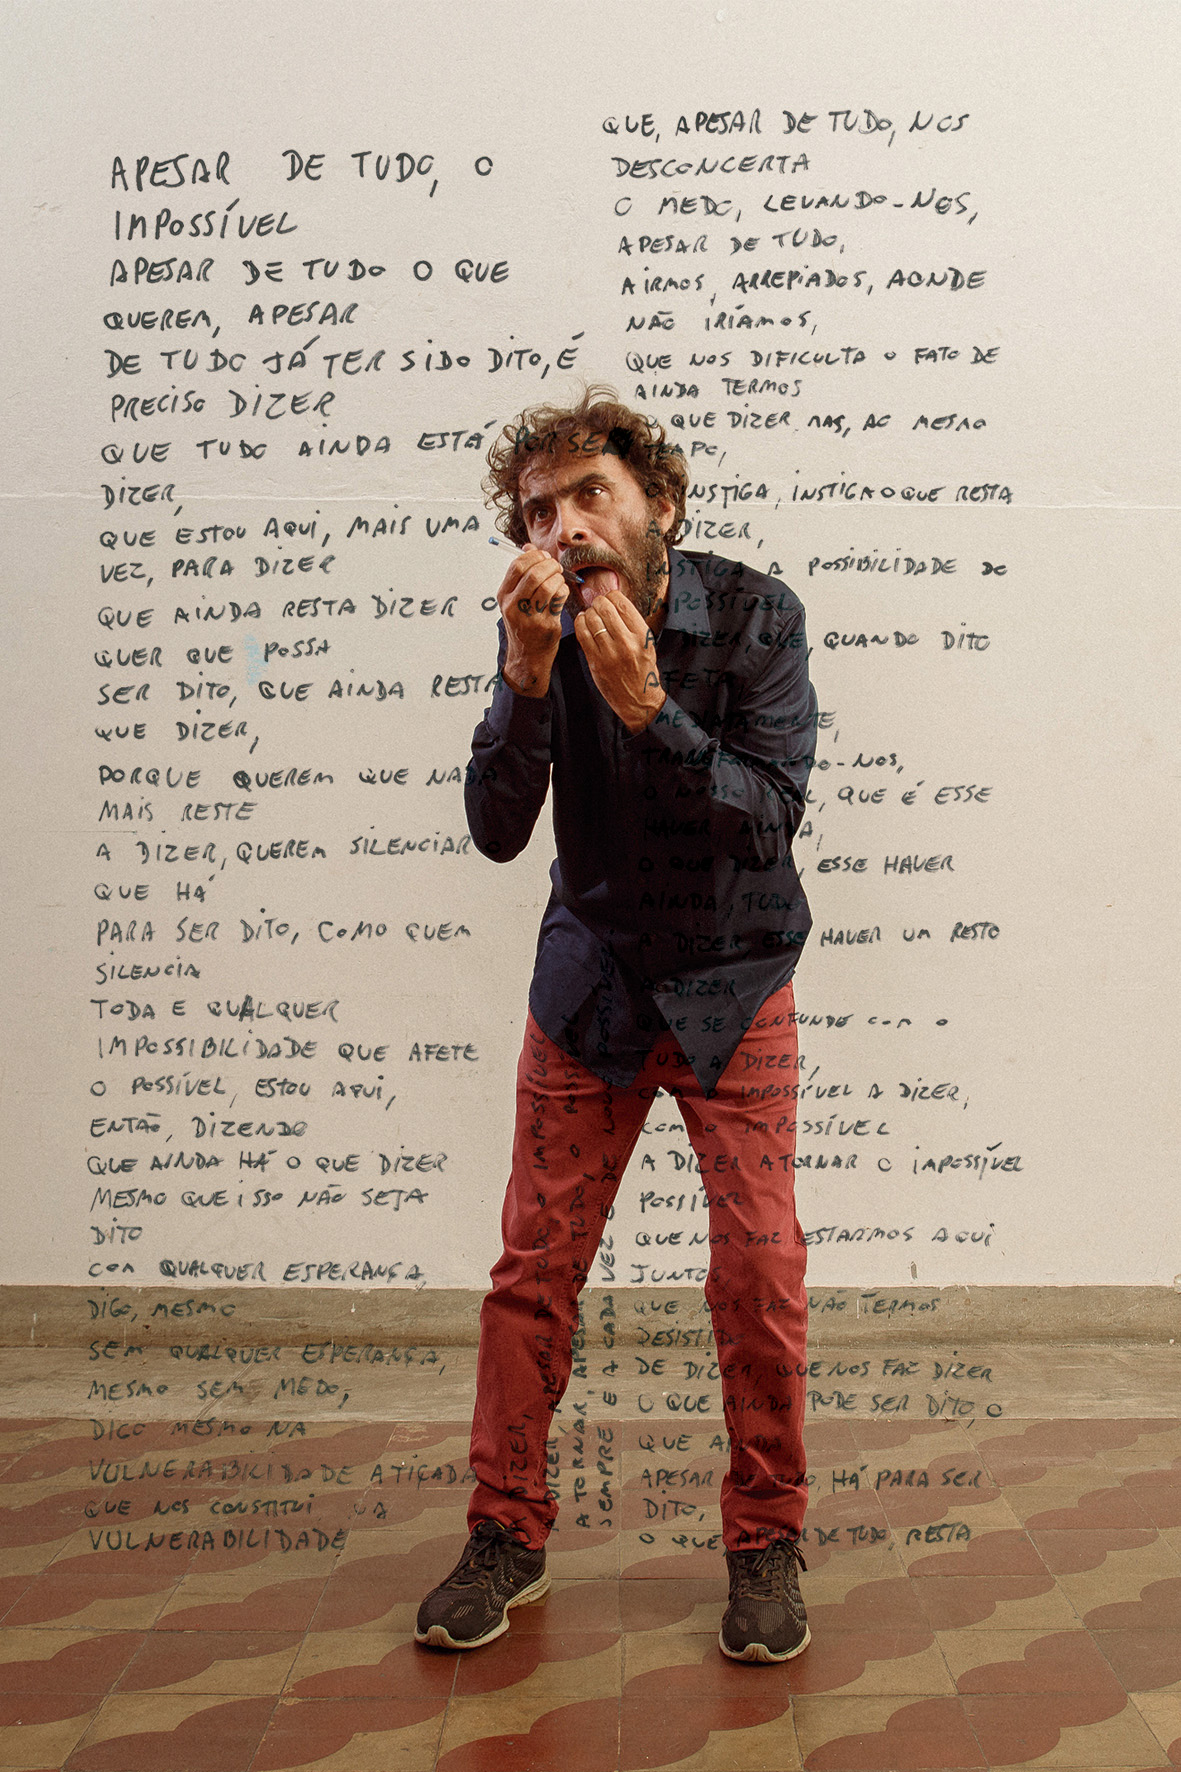 APESAR DE TUDO, O
IMPOSSÍVEL
APESAR DE TUDO O QUE
QUEREM, APESAR
DE TUDO JÁ TER SIDO DITO, É
PRECISO DIZER
QUE TUDO AINDA ESTÁ POR SER
DIZER,
QUE ESTOU AQUI, MAIS UMA
VEZ, PARA DIZER
QUE AINDA RESTA DIZER O QUE
QUER QUE POSSA
SER DITO, QUE AINDA RESTA
QUE DIZER,
PORQUE QUEREM QUE NADA
MAIS RESTE
A DIZER, QUEREM SILENCIAR O
QUE HÁ
PARA SER DITO, COMO QUEM
SILENCIA
TODA E QUALQUER
IMPOSSIBILIDADE QUE AFETE
O POSSÍVEL, ESTOU AQUI,
ENTÃO, DIZENDO
QUE AINDA HÁ O QUE DIZER
MESMO QUE ISSO NÃO SEJA
DITO
COM QUALQUER ESPERANÇA,
DIGO, MESMO
SEM QUALQUER ESPERANÇA,
MESMO SEM MEDO,
DIGO MESMO NA
VULNERABILIDADE ATIÇADA
QUE NOS CONSTITUI NA
VULNERABILIDADE
QUE, APESAR DE TUDO, NOS
DESCONCERTA
O MEDO, LEVANDO-NOS,
APESAR DE TUDO,
A IRMOS, ARREPIADOS, AONDE
NÃO IRÍAMOS,
QUE NOS DIFICULTA O FATO DE
AINDA TERMOS
O QUE DIZER MAS, AO MESMO
TEMPO,
O INSTIGA, INSTIGA O QUE RESTA
A DIZER,
INSTIGA A POSSIBILIDADE DO
IMPOSSÍVEL
A DIZER, QUE, QUANDO DITO
AFETA,
IMEDIATAMENTE,
TRANSFORMANDO-NOS,
O NOSSO REAL, QUE É ESSE
HAVER, AINDA,
O QUE DIZER, ESSE HAVER
AINDA, TUDO
A DIZER, ESSE HAVER UM RESTO
A DIZER
QUE SE CONFUNDE COM O
TUDO A DIZER,
COM O IMPOSSÍVEL A DIZER,
COM O IMPOSSÍVEL
A DIZER A TORNAR O IMPOSSÍVEL
POSSÍVEL
QUE NOS FAZ ESTARMOS AQUI
JUNTOS
QUE NOS FAZ NÃO TERMOS
DESISTIDO
DE DIZER, QUE NOS FAZ DIZER
O QUE AINDA PODE SER DITO, O
QUE AINDA
APESAR DE TUDO, HÁ PARA SER
DITO,
O QUE, APESAR DE TUDO, RESTA
A DIZER,
A DIZER, APESAR DE TUDO O IMPOSSÍVEL
A TORNAR, APESAR DE TUDO, O POSSÍVEL
SEMPRE E A CADA VEZ E DE NOVO POSSÍVEL